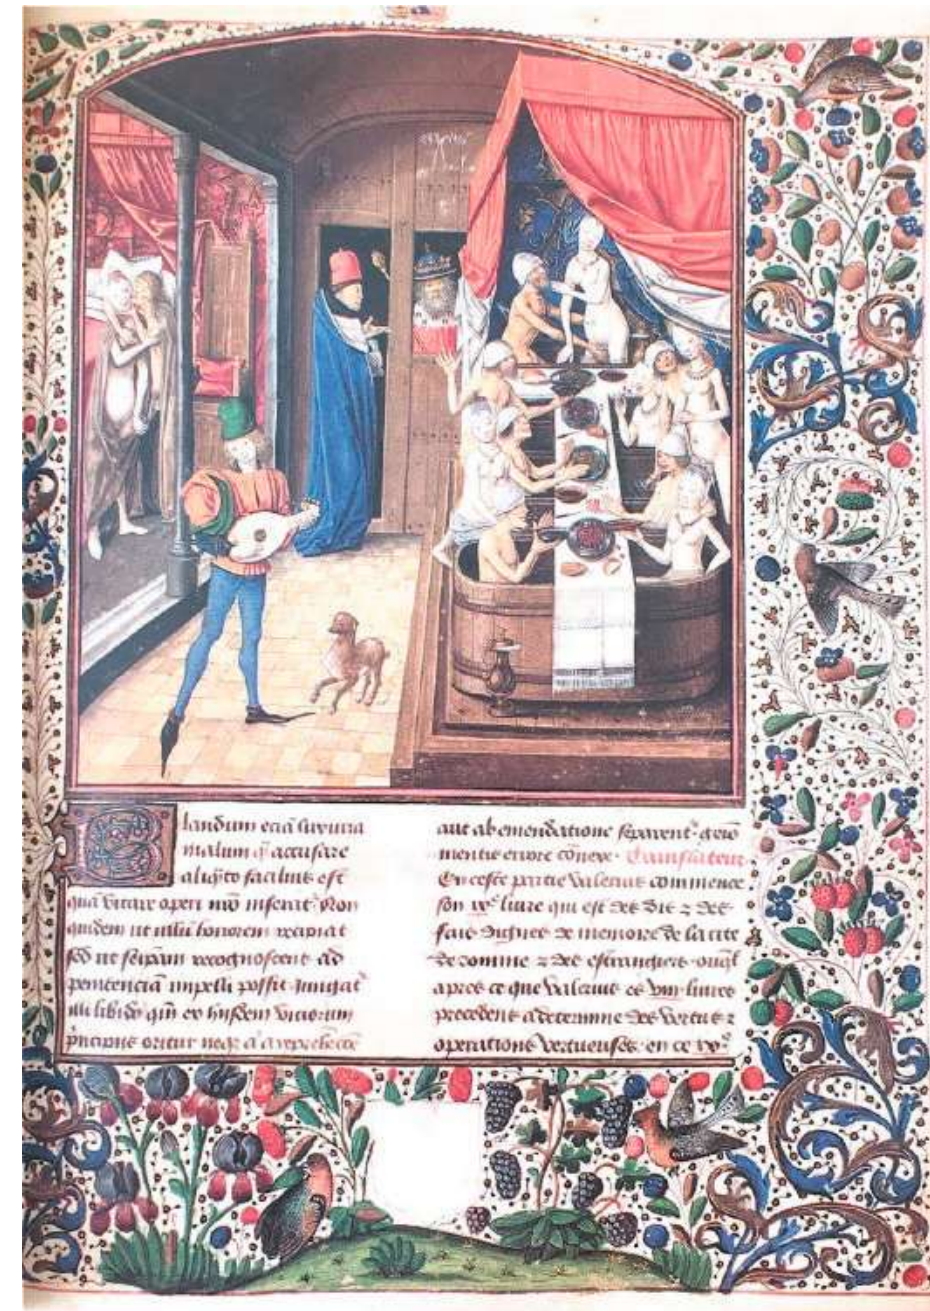 landum eciā luxuria
malum q̄ accusare
aliq̄to facilius est
quā vitare operi nrō inserat. Non
quidem ut ullū honorem recipiat
sed ut seipam recognoscens ad
penitenciā impelli possit. Jungat̄
illi libido qm̄ ex hijsdem viciorum
principiis oritur neqꝫ a a reprehēcōe
aut ab emendatione separent̄
mentis errore cōnexe. Translateur.
En ceste partie Valerius commence
son ixᵉ livre qui est des dis ꝫ des
fais dignes de memoire de la cite
de romme ꝫ des estrangiers
apres ce que Valerius es viii livres
precedens a determine des vertus ꝫ
operations vertueuses en ce ixᵉ